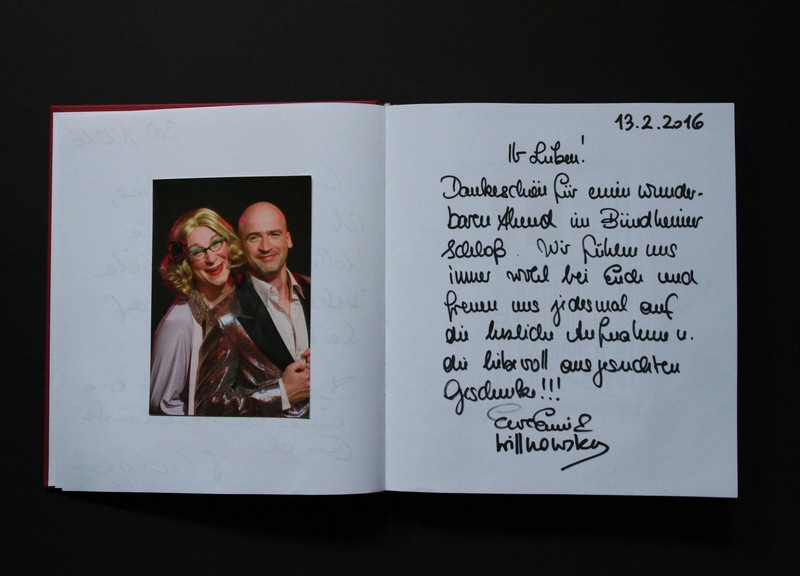 13.2.2016
Ihr Lieben!
Dankeschön für einen wunder-
baren Abend im Bündheimer
Schloß. Wir fühlen uns
immer wohl bei Euch und
freuen uns jedesmal auf
die herzliche Aufnahme u.
die liebevoll ausgesuchten
Geschenke!!!
Emmi &
Willnowsky